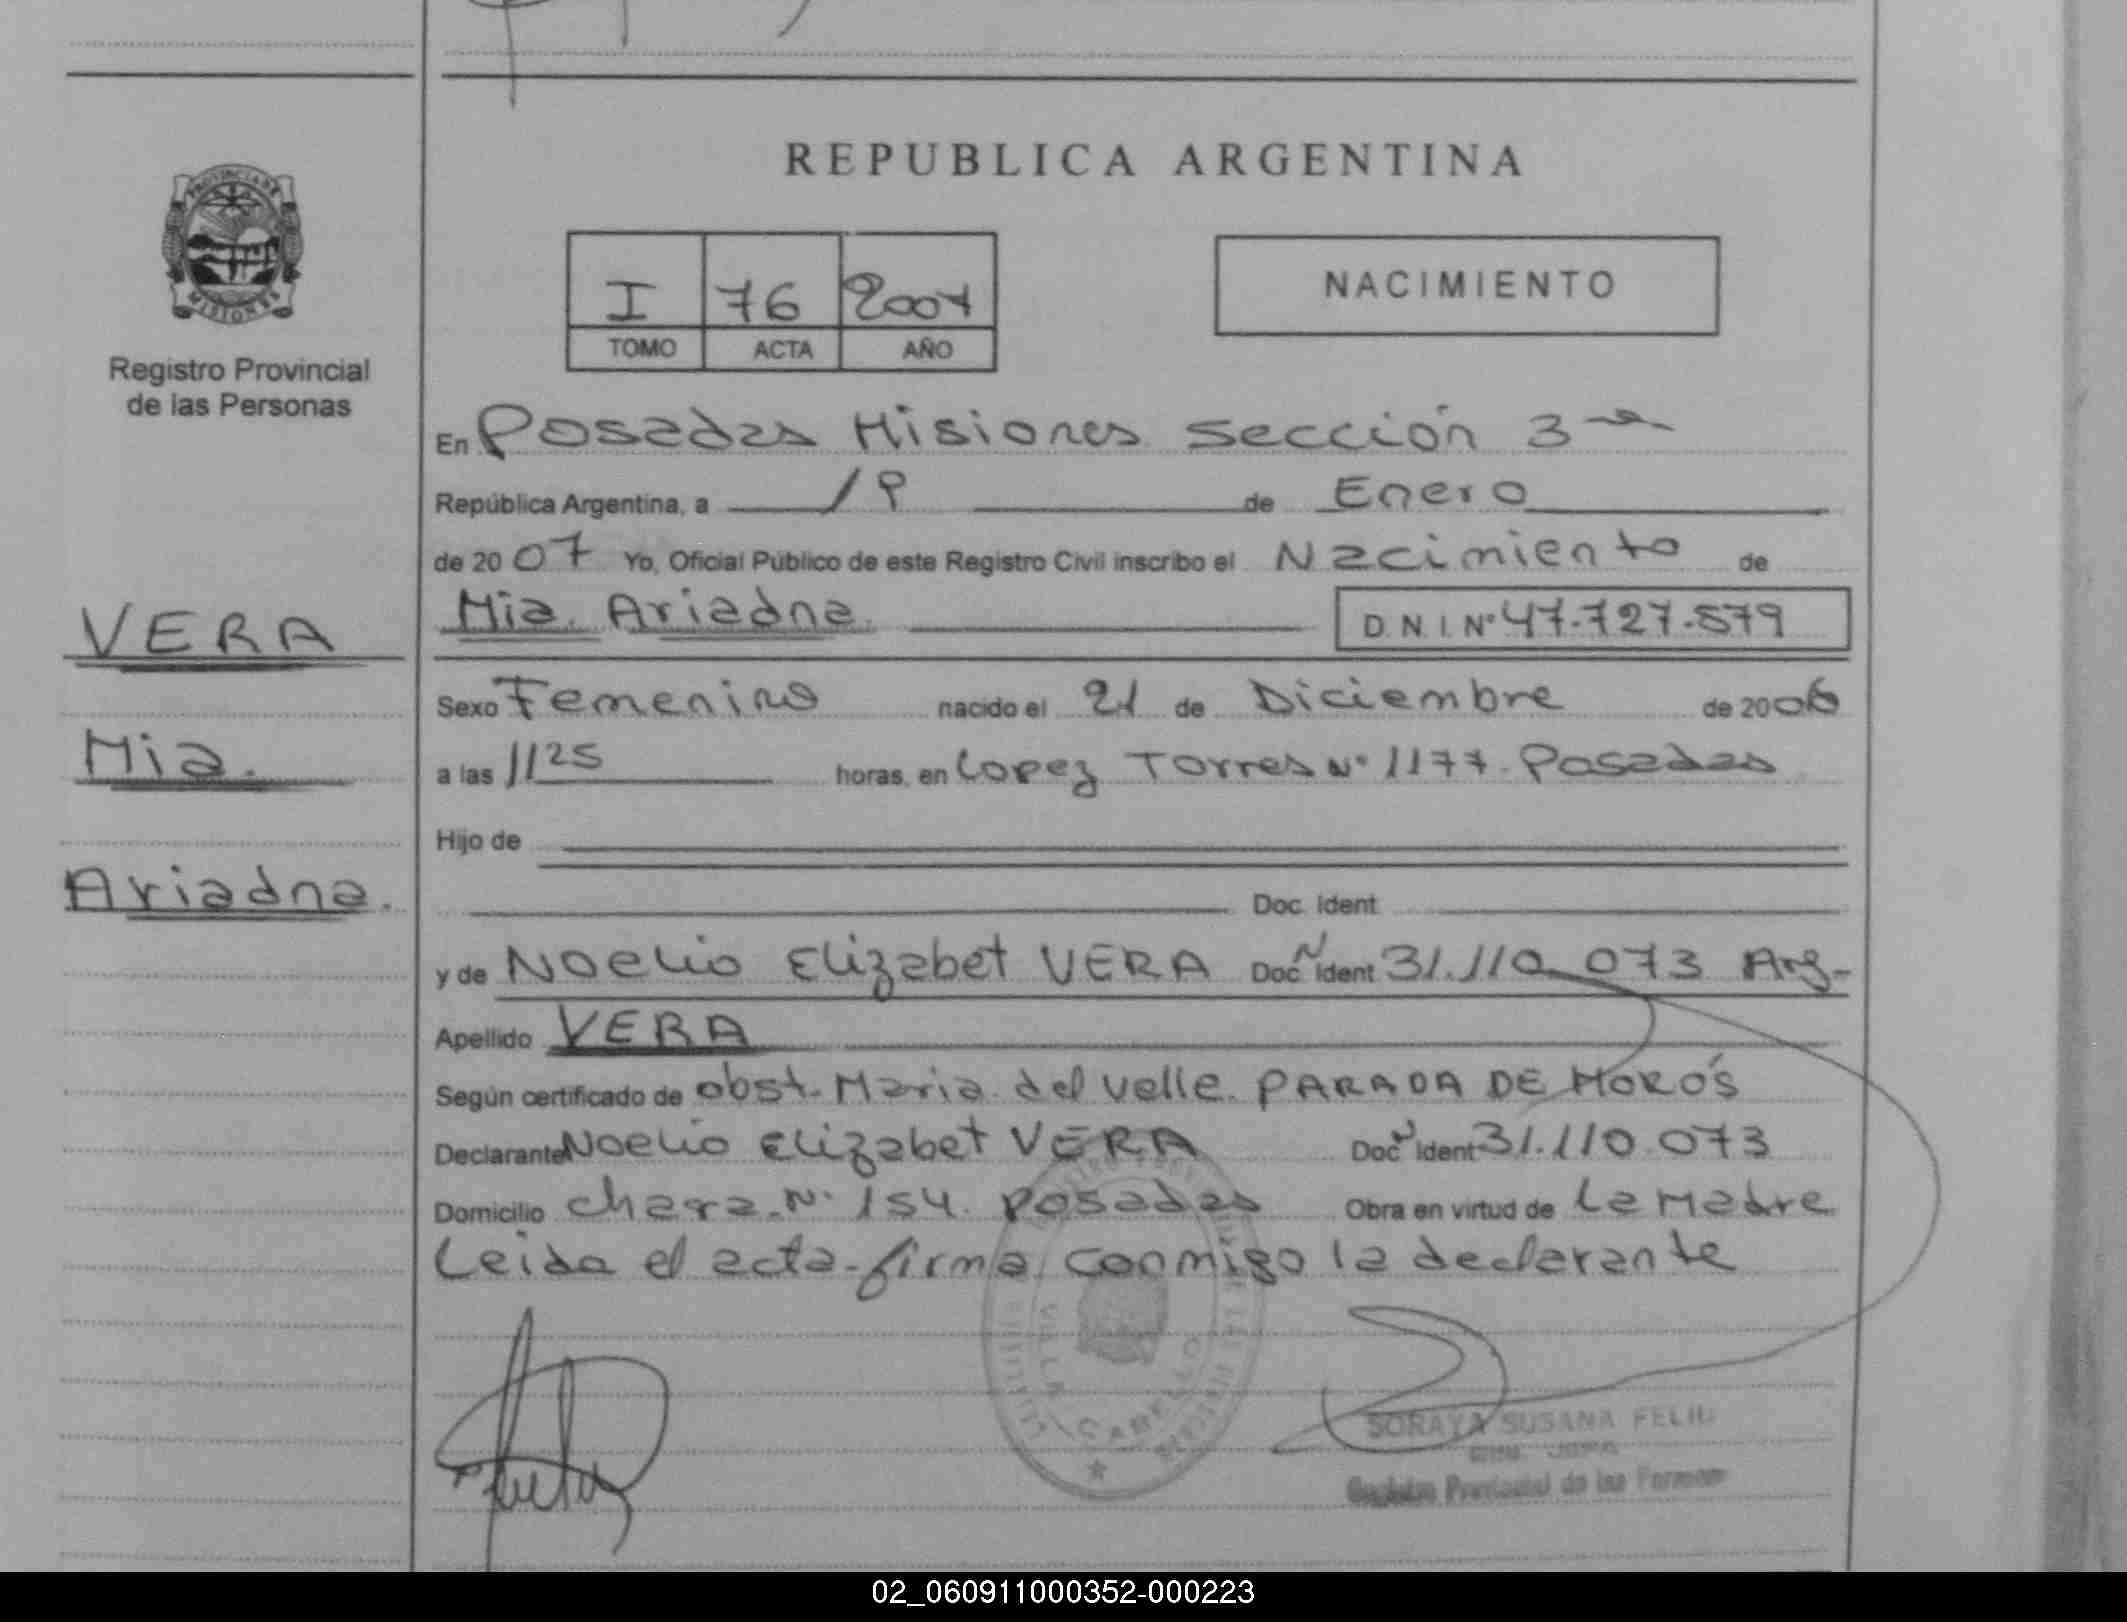 REPUBLICA ARGENTINA
PROVINCIA DE
MISIONES
Registro Provincial
de las Personas
I 76 2007
TOMO ACTA AÑO
NACIMIENTO
En Posadas Misiones sección 3ra
República Argentina, a 19 de Enero
de 2007 Yo, Oficial Público de este Registro Civil inscribo el Nacimiento de
VERA
Mia Ariadna D.N.I. Nº 47.727.579
Sexo Femenino nacido el 21 de Diciembre de 2006
Mia
a las 1125 horas, en Lopez Torres Nº 1177. Posadas
Hijo de
Ariadna.
Doc. Ident
y de Noelio Elizabet VERA Doc. N Ident 31.110.073 Arg-
Apellido VERA
Según certificado de obst. Maria del Valle PARADA DE
Declarante Noelio Elizabet VERA Doc N Ident 31.110.073
Domicilio Nº 154. Posadas Obra en virtud de La Madre
Leida el acta firma conmigo la declarante
VILLA CABELLO
SORAYA SUSANA FELIU
Registro Provincial de las Personas
02_060911000352-000223